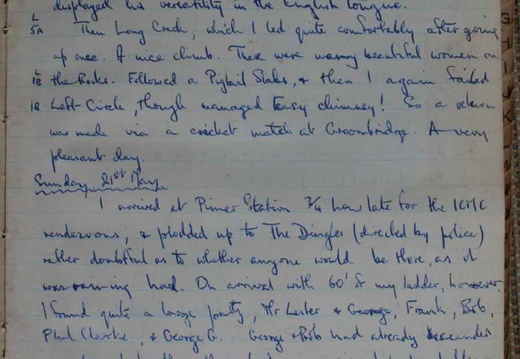 displayed his versatility in the English tongue.
L
5A Then Long Crack, which I led quite comfortably after going
up once. A nice climb. There were many beautiful women on
1B the Rocks. Followed a Pigtail Slabs, & then I again failed
1B Left Circle, though managed Teasy chimney! So a return
was made via a cricket match at Groombridge. A very
pleasant day.
Sunday 21st May.
I arrived at Pinner Station 3/4 hour late for the ICMC
rendezvous, & plodded up to The Dingles (directed by police)
rather doubtful as to whether anyone would be there, as it
was raining hard. On arrival with 60' of my ladder, however,
I found quite a large party, Mr Lester & George, Frank, Bob,
Phil Clarke, & George G. George & Bob had already